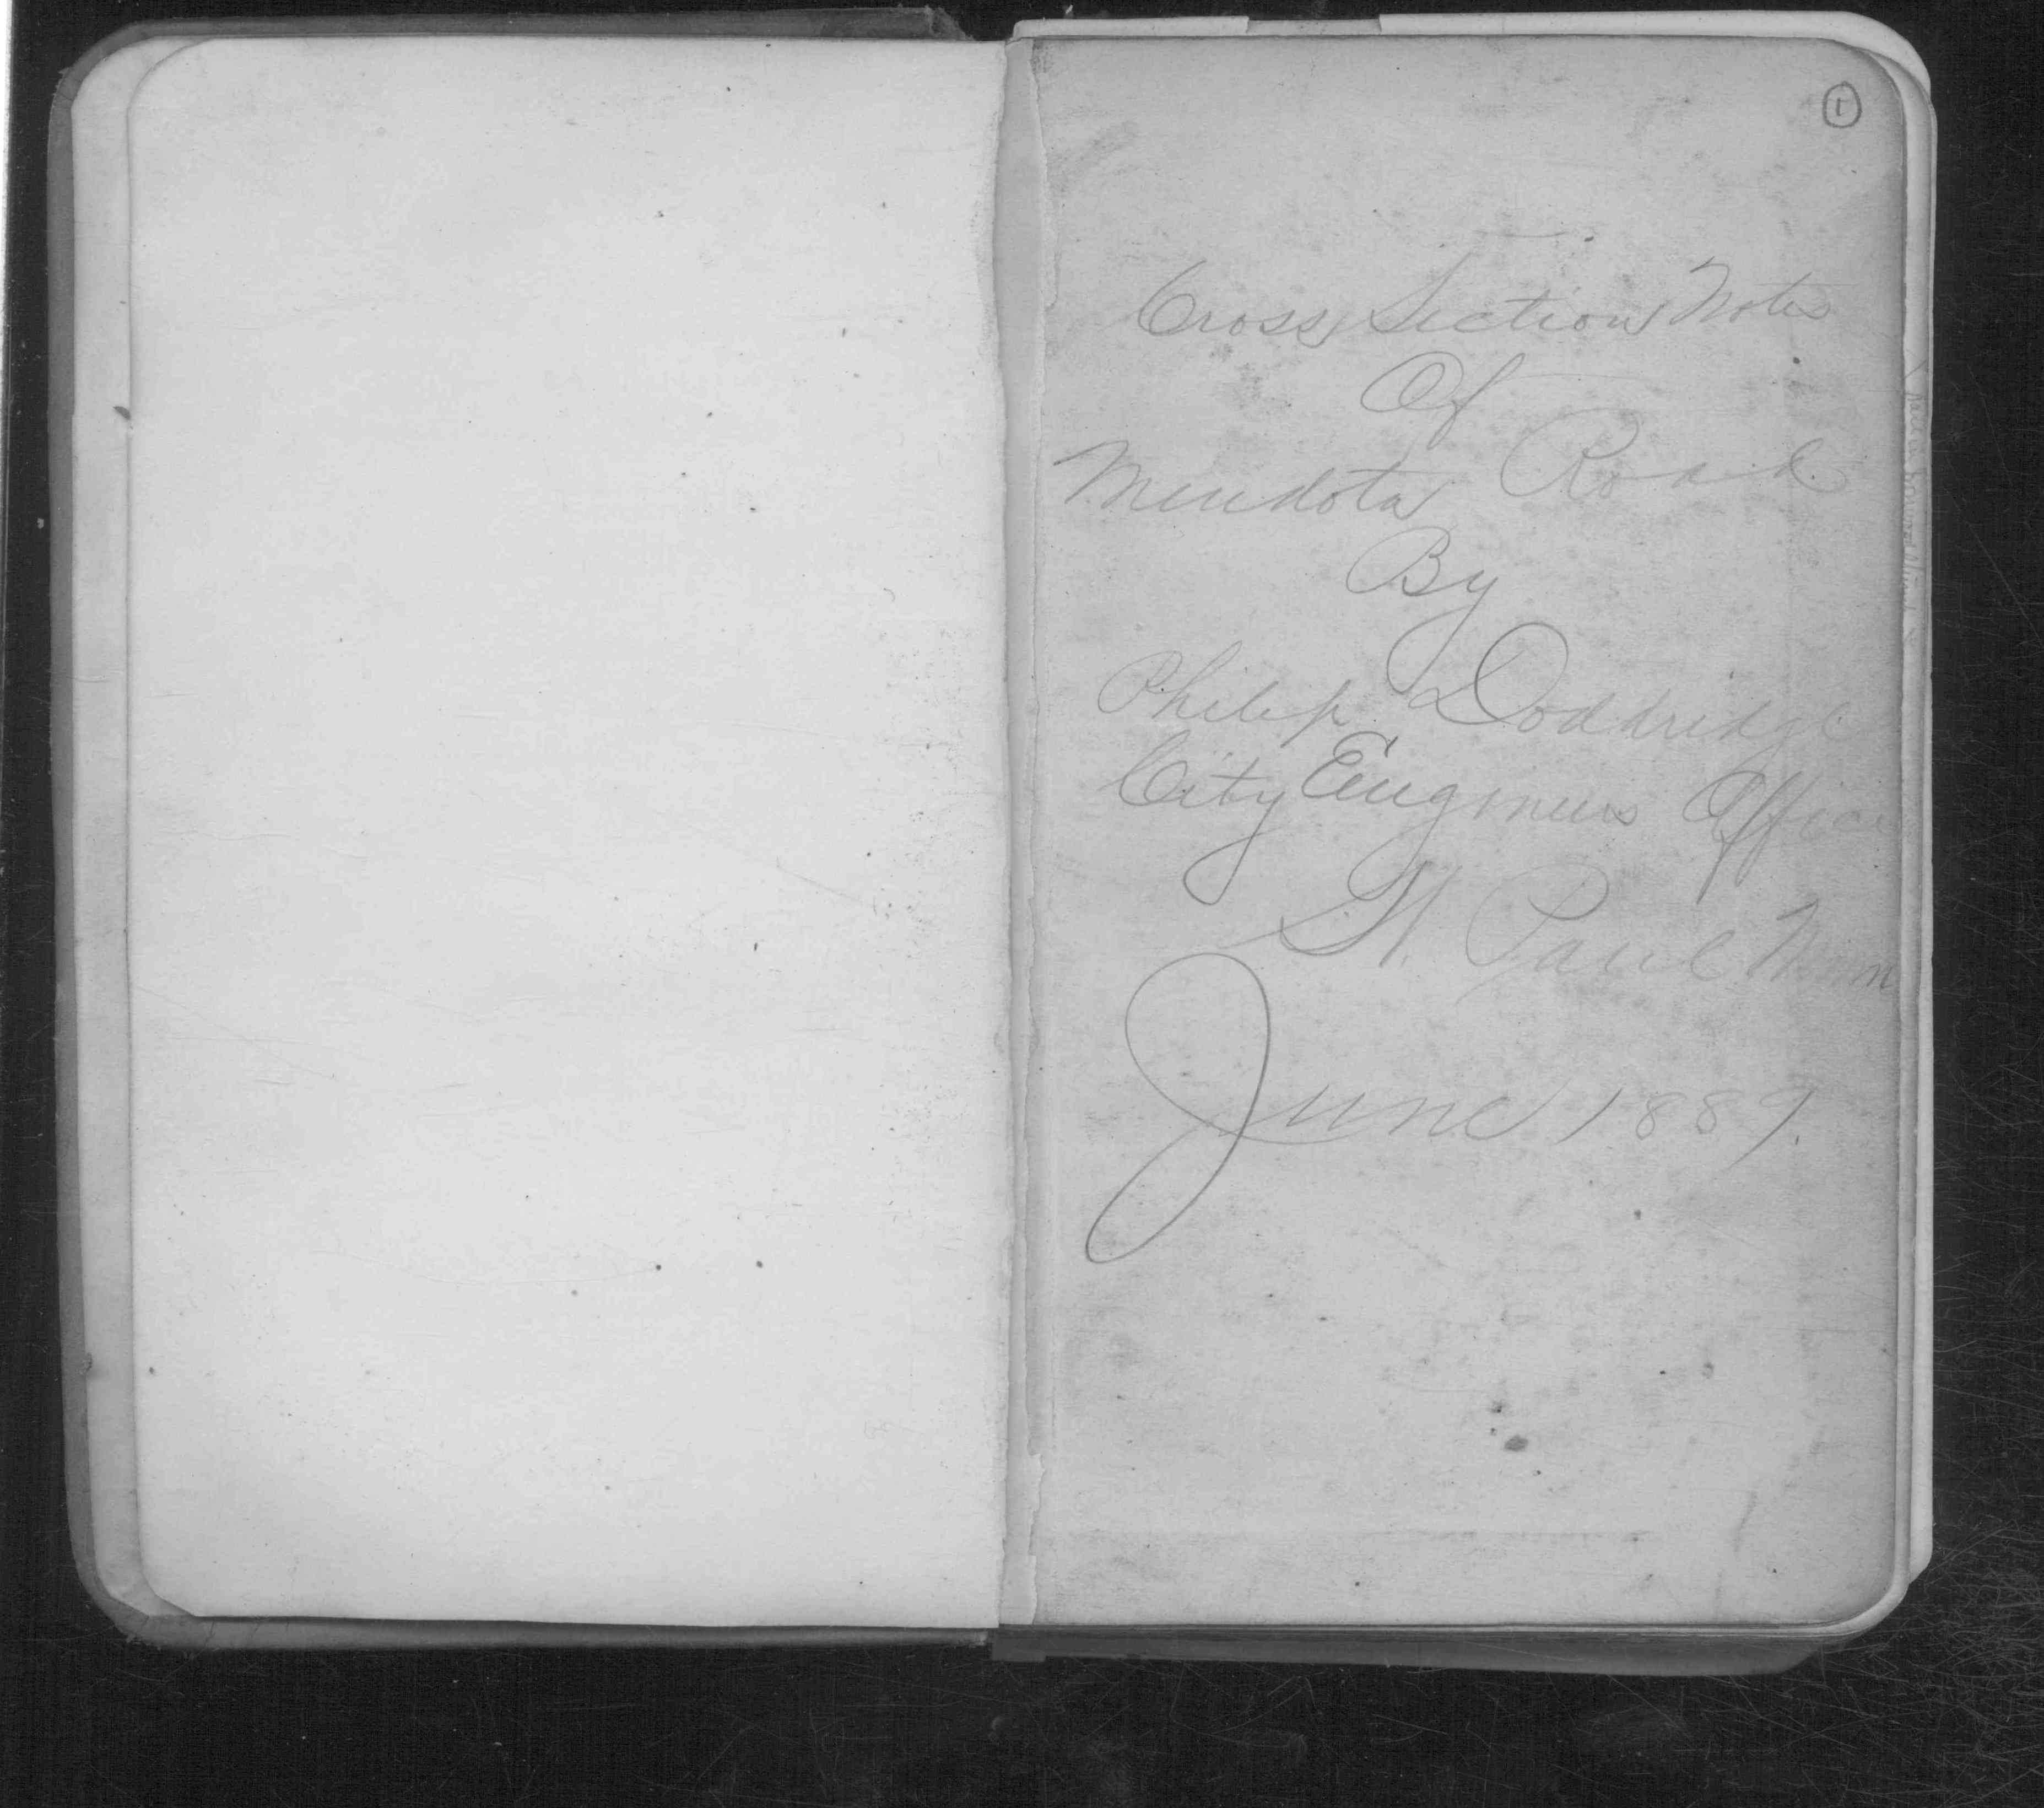 1
Cross Section Notes
Of
Mendota Road
By
Philip Doddridge
City Engineers Office
St. Paul Minn
June 1889.